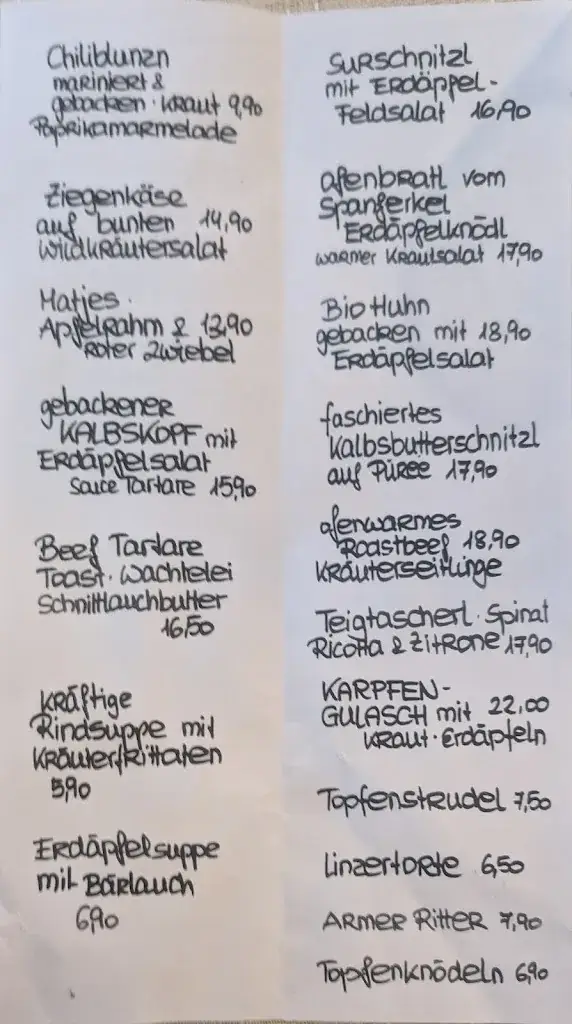 Chiliblunzn
mariniert &
gebacken · Kraut 9,90
Paprikamarmelade
Ziegenkäse
auf bunten 14,90
Wildkräutersalat
Matjes ·
Apfelrahm & 13,90
Roter Zwiebel
gebackener
KALBSKOPF mit
Erdäpfelsalat
Sauce Tartare 15,90
Beef Tartare
Toast · Wachtelei
Schnittlauchbutter
16,50
Kräftige
Rindsuppe mit
Kräuterfrittaten
5,90
Erdäpfelsuppe
mit Bärlauch
6,90
Surschnitzl
mit Erdäpfel-
Feldsalat 16,90
Ofenbratl vom
Spanferkel
Erdäpfelknödl
warmer Krautsalat 17,90
Bio Huhn
gebacken mit 18,90
Erdäpfelsalat
faschiertes
Kalbsbutterschnitzl
auf Püree 17,90
ofenwarmes
Roastbeef 18,90
Kräuterseitlinge
Teigtascherl · Spinat
Ricotta & Zitrone 17,90
KARPFEN-
GULASCH mit 22,00
Kraut · Erdäpfeln
Topfenstrudel 7,50
Linzertorte 6,50
Armer Ritter 7,90
Topfenknödeln 6,90